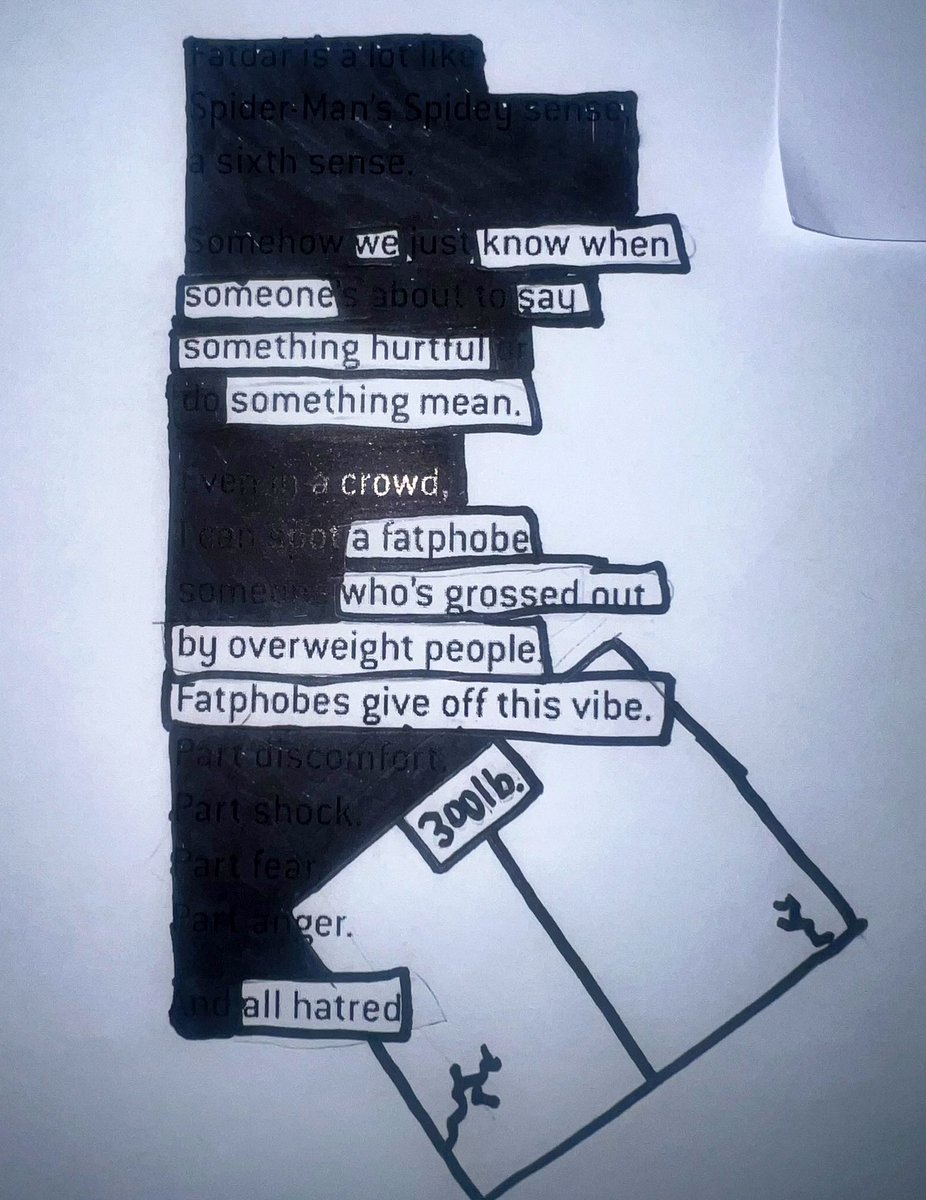 Fatdar is a lot like
Spider-Man's Spidey sense,
a sixth sense.
Somehow we just know when
someone's about to say
something hurtful or
do something mean.
Even in a crowd,
I can spot a fatphobe
someone who's grossed out
by overweight people.
Fatphobes give off this vibe.
Part discomfort.
Part shock.
300lb.
Part fear.
Part anger.
And all hatred